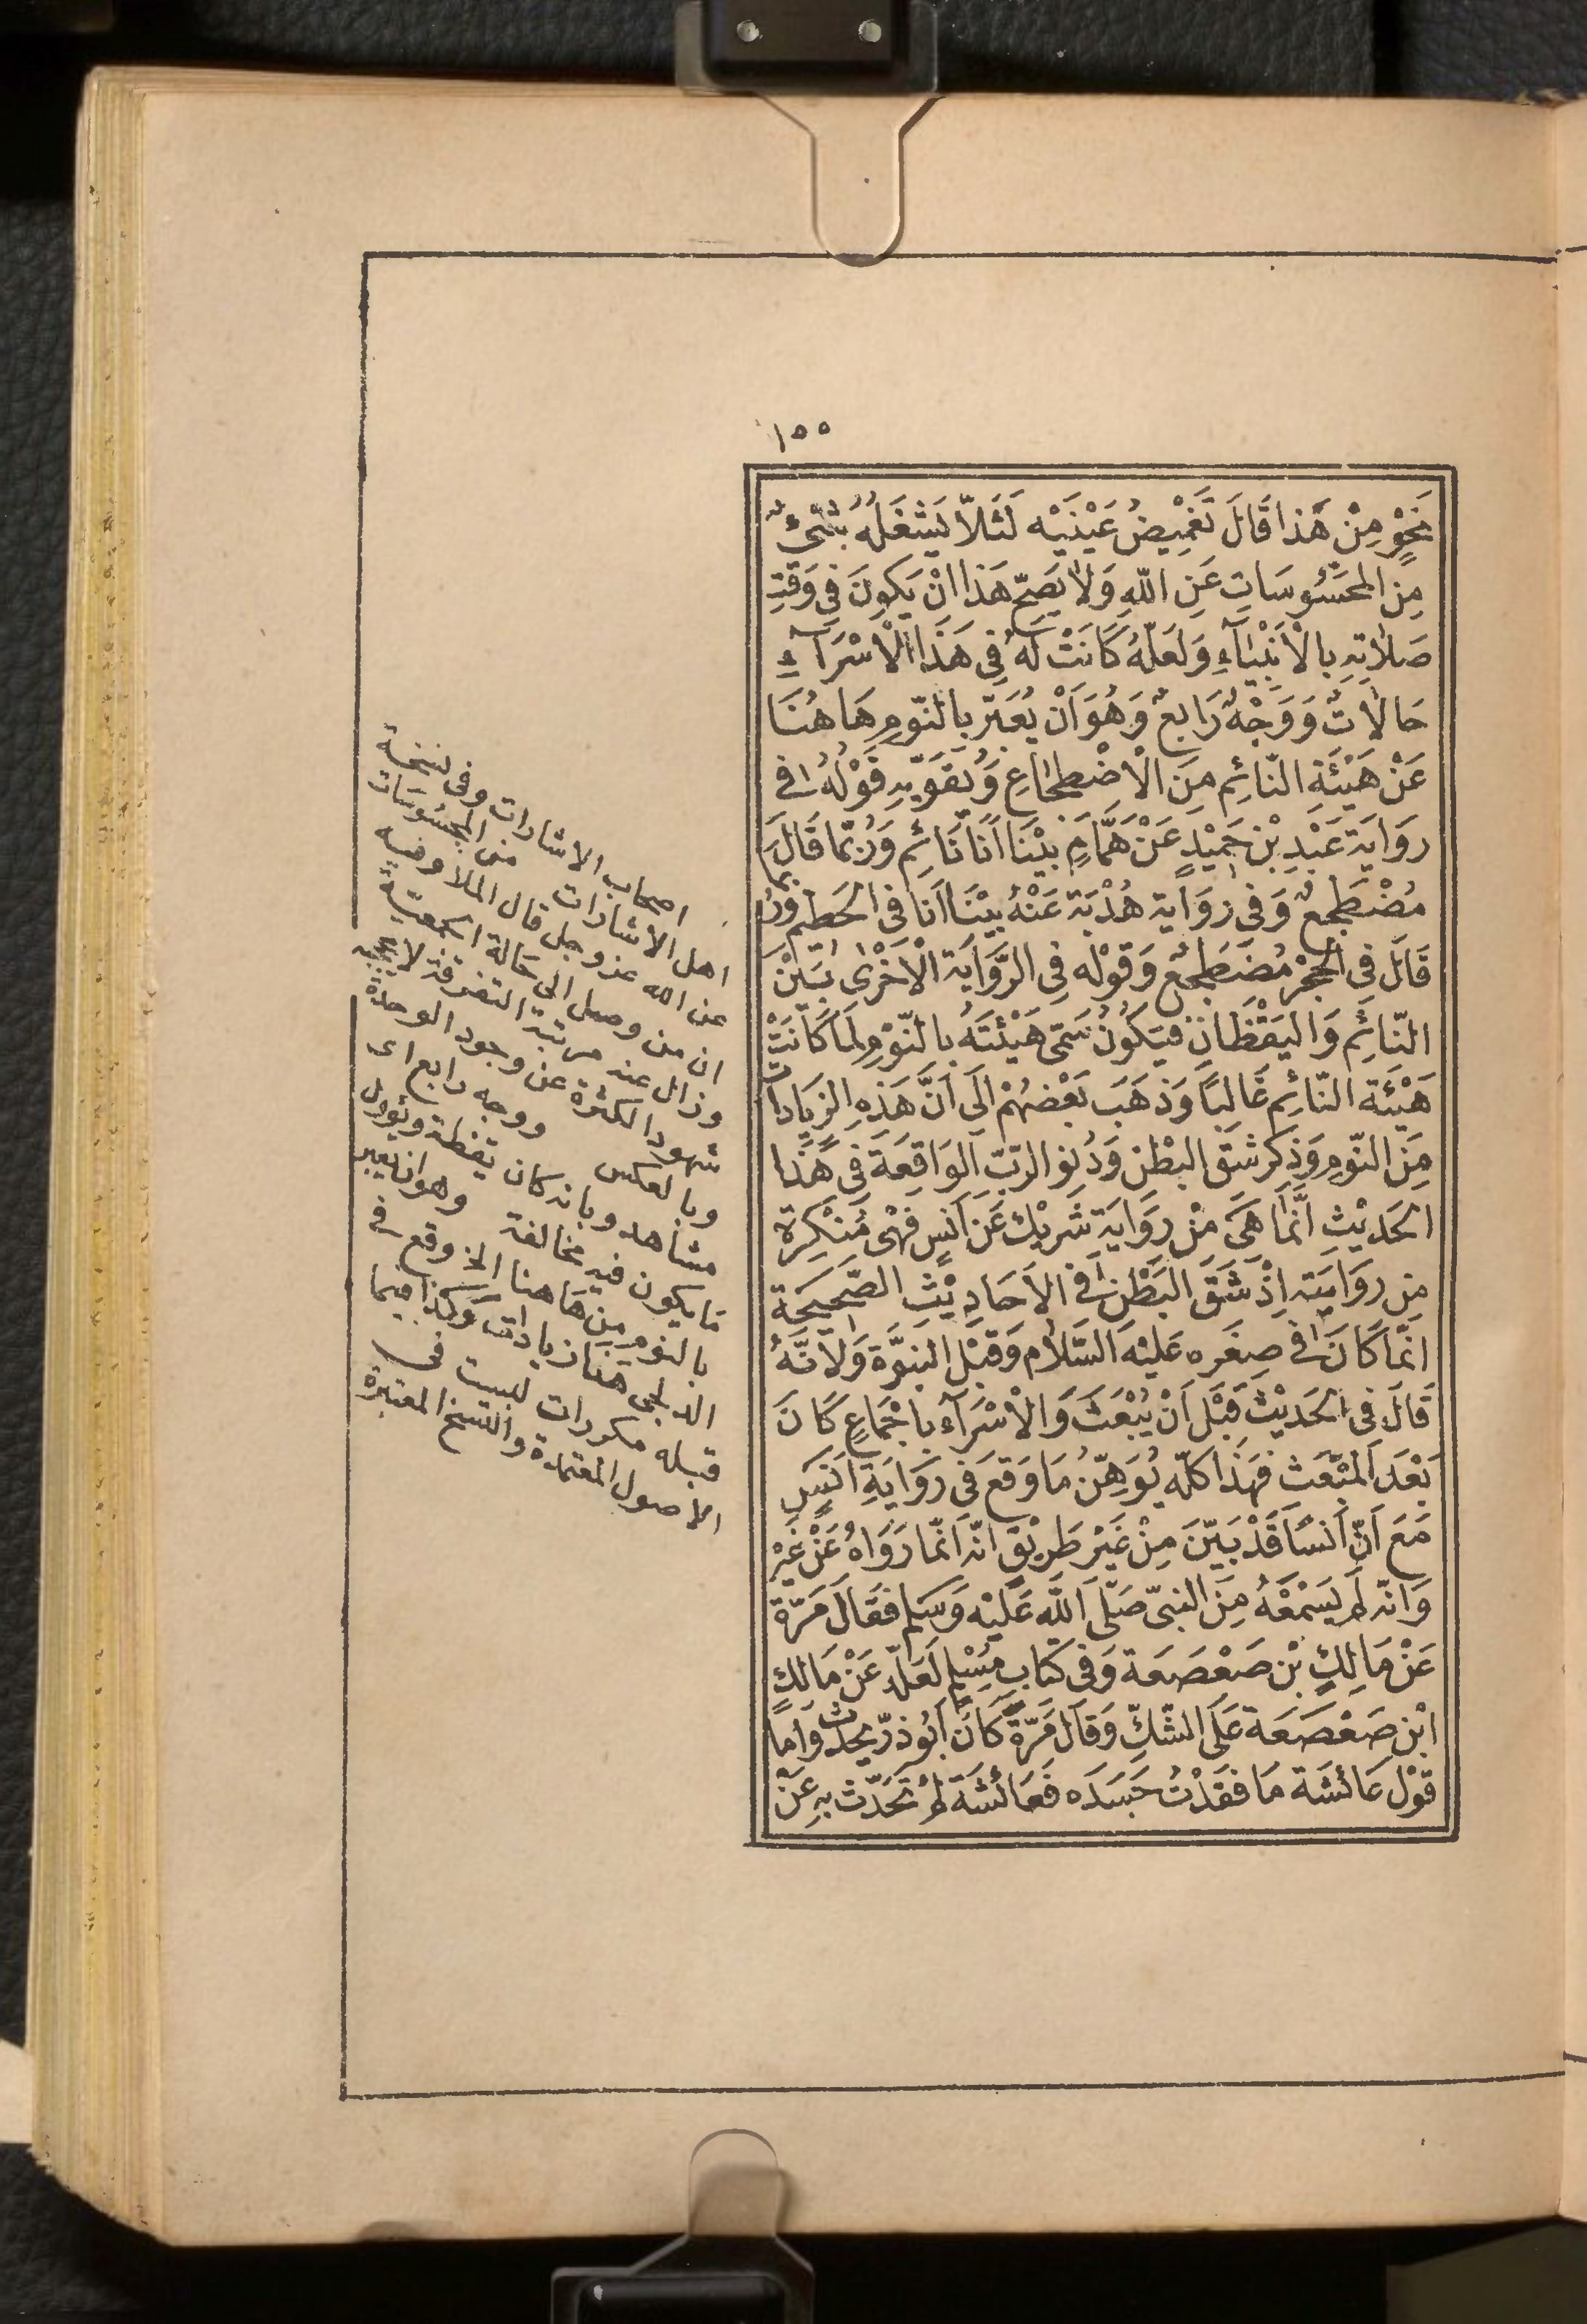 ١٥٥
نَحْوٍ مِنْ هَذا قَالَ تَغْمِيضُ عَيْنَيْه لَئَلاّ يَشْغَلَهُ شَىْءٌ
مِنَ المَحْسُوسَاتِ عَنِ اللّهِ وَلا يَصِحّ هَذا انْ يَكونَ فِى وَقتِ
صَلاتِهِ بالْأنْبيَآءِ وَلَعَلّهُ كَانَتْ لَهُ فِى هَذَا الْاسْرَآءِ
حَالاتٌ وَوَجْهٌ رَابِعٌ وَهُوَ اَنْ يُعَبّرَ بالنّومِ هَا هُنَا
عَنْ هَيْئَةِ النّائِم مِنَ الْاضْطِجَاعِ وَيُقَوّيهِ قَوْلُهُ فِى
رِوَايَة عَبْدِ بْن حُمَيْدٍ عَنْ هَمَّامٍ بَيْنَا اَنَا نَائِم وَرُبّمَا قَالَ
مُضْطَجِعٌ وَفى رِوَايَة هُدْبَة عَنْهُ بَيْنَا اَنا فى الحَطيم وَرُبما
قَالَ فِى الْحِجْر مُضْطَجِعٌ وَقوْلِه فِى الرِّوَايَة الْاخْرٰى بَيْنَ
النّائِم وَاليَقْظَانِ فَيَكُونُ سَمّى هَيْئَتَهُ بالنّوْمِ لِمَا كَانَتْ
هَيْئَة النّائِم غَالِبًا وَذهَبَ بَعْضهُمْ الَى اَنَّ هَذِهِ الزيَادات
مِنَ النّومِ وَذِكر شَقّ البَطْن وَدُنوّ الرّبّ الوَاقِعَة فى هَذا
الحَديْثِ انَّمَا هىَ مِنْ رِوَايَة شَرِيْك عَن اَنَسٍ فَهْىَ مُنْكَرة
مِن رِوَايَتِهِ اِذْ شَقّ البَطْن فى الاَحَادِيْثِ الصّحِيحَة
انّمَا كَانَ فى صِغَره عَليْهِ السّلَام وَقبْل النبوَّة وَلأنَّهُ
قَالَ فى الحَديْثِ قَبْل اَنْ يُبْعَثَ وَالْاسْرَآء باجْمَاعٍ كَانَ
بَعْدَ المَبْعَث فَهَذَا كلّه يُوَهِّنُ مَا وَقعَ فى رِوَايَةِ اَنَسٍ
مَعَ اَنّ اَنسًا قَدْ بَيّنَ مِنْ غَيْر طَرِيْقٍ انّه اَنّمَا رَوَاهُ عَنْ غَيْره
وَانّه لَم يَسْمَعْهُ مِنَ النبىّ صَلّى اللّه عَلَيْه وَسَلم فقَالَ مَرّة
عَنْ مَالِكِ بْن صَعْصَعَة وَفى كتَاب مُسْلِم لَعَلّه عَنْ مَالك
ابْن صَعْصَعَة عَلَى الشّكّ وَقَالَ مَرّةً كَانَ اَبُوذرّ يحدّث وَاما
قوْل عَائشَة مَا فقَدْتُ جَسَدَه فَعَائشَة لم تحَدّث بهِ عَنْ
اصحاب الاشارات وفى نسخة
اهل الاشارات من المحسوسات
عن الله عز وجل قال الملا وفيه
ان من وصل الى حالة الجمعية
وزال عند مرتبة التفرقة لا يحجبه
شهود الكثرة عن وجود الوحدة
وبالعكس ووجه رابع اى
مشاهد وبانه كان يقظة ويؤول
ما يكون فيه مخالفة وهو ان يعبر
بالنوم من هاهنا الخ وقع فى
الدلجى هنا زيادات وكذا فيما
قبله مكررات ليست فى
الاصول المعتمدة والنسخ المعتبرة